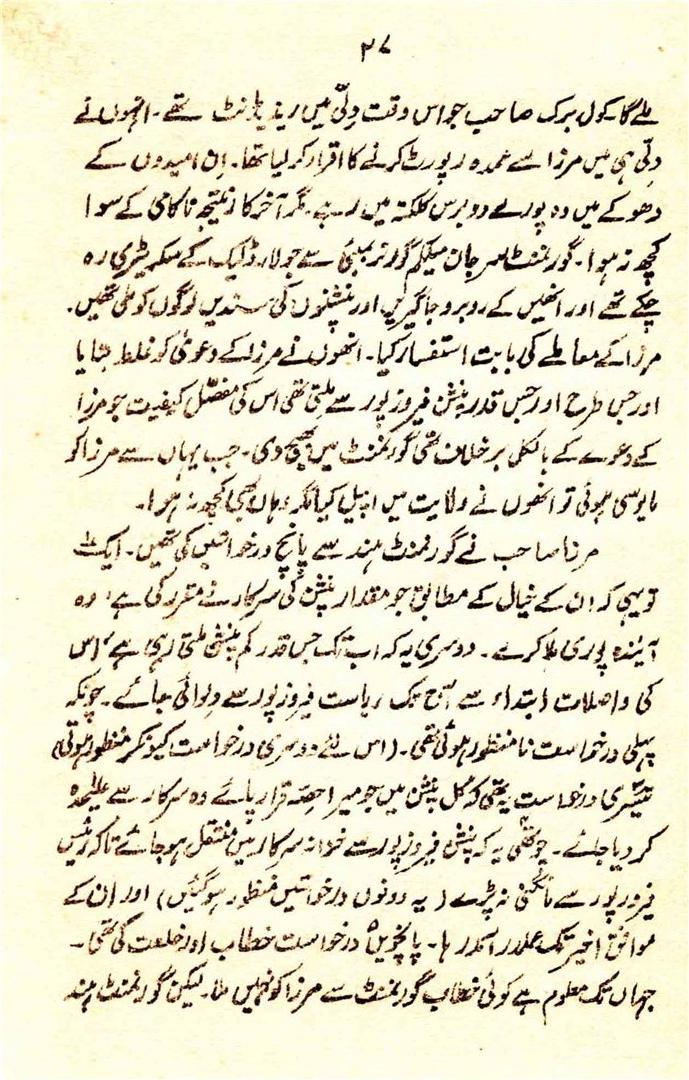 ۲۷
ملے گا۔ کول برک صاحب جو اس وقت دِلّی میں ریذیڈنٹ تھے۔ انہوں نے
دِلّی ہی میں مرزا سے عمدہ رپورٹ کرنے کا اقرار کر لیا تھا۔ اِن امیدوں کے
دھوکے میں وہ پورے دو برس کلکتہ میں رہے۔ مگر آخر کار نتیجہ ناکامی کے سوا
کچھ نہ ہوا۔ گورنمنٹ سر جان میلکم گورنر بمبئی سے جو لارڈ لیک کے سکریٹری رہ
چکے تھے اور انھیں کے روبرو جاگیریں اور پنشنوں کی سندیں لوگوں کو ملی تھیں۔
مرزا کے معاملے کی بابت استفسار کیا۔ انھوں نے مرزا کے دعویٰ کو غلط بتایا
اور جس طرح اور جس قدر پنشن فیروز پور سے ملتی تھی اس کی مفصّل کیفیت جو مرزا
کے دعوے کے بالکل برخلاف تھی گورنمنٹ میں بھیج دی۔ جب یہاں سے مرزا کو
مایوسی ہوئی تو انھوں نے ولایت میں اپیل کیا مگر وہاں بھی کچھ نہ ہوا۔
مرزا صاحب نے گورنمنٹ ہند سے پانچ درخواستیں کی تھیں۔ ایک
تو یہی کہ ان کے خیال کے مطابق جو مقدار پنشن کی سرکار نے مقرر کی ہے، وہ
آیندہ پوری ملا کرے۔ دوسری یہ کہ اب تک جس قدر کم پنشن ملتی رہی ہے، اس
کی واصلات ابتداء سے آج تک ریاست فیروز پور سے دلوائی جائے۔ چونکہ
پہلی درخواست نامنظور ہوئی تھی۔ (اس لئے دوسری درخواست کیونکر منظور ہوتی)
تیسری درخواست یہ تھی کہ کل پنشن میں جو میرا حصّہ قرار پائے وہ سرکار سے علیٰحدہ
کر دیا جائے۔ چوتھی یہ کہ پنشن فیروز پور سے خزانہ سرکار میں منتقل ہو جائے تاکہ رئیس
فیروز پور سے مانگنی نہ پڑے (یہ دونوں درخواستیں منظور ہو گئیں) اور اِن کے
موافق اخیر تک عملدرآمد رہا۔ پانچویں درخواست خطاب اور خلعت کی تھی۔
جہاں تک معلوم ہے کوئی خطاب گورنمنٹ سے مرزا کو نہیں ملا۔ لیکن گورنمنٹ ہند